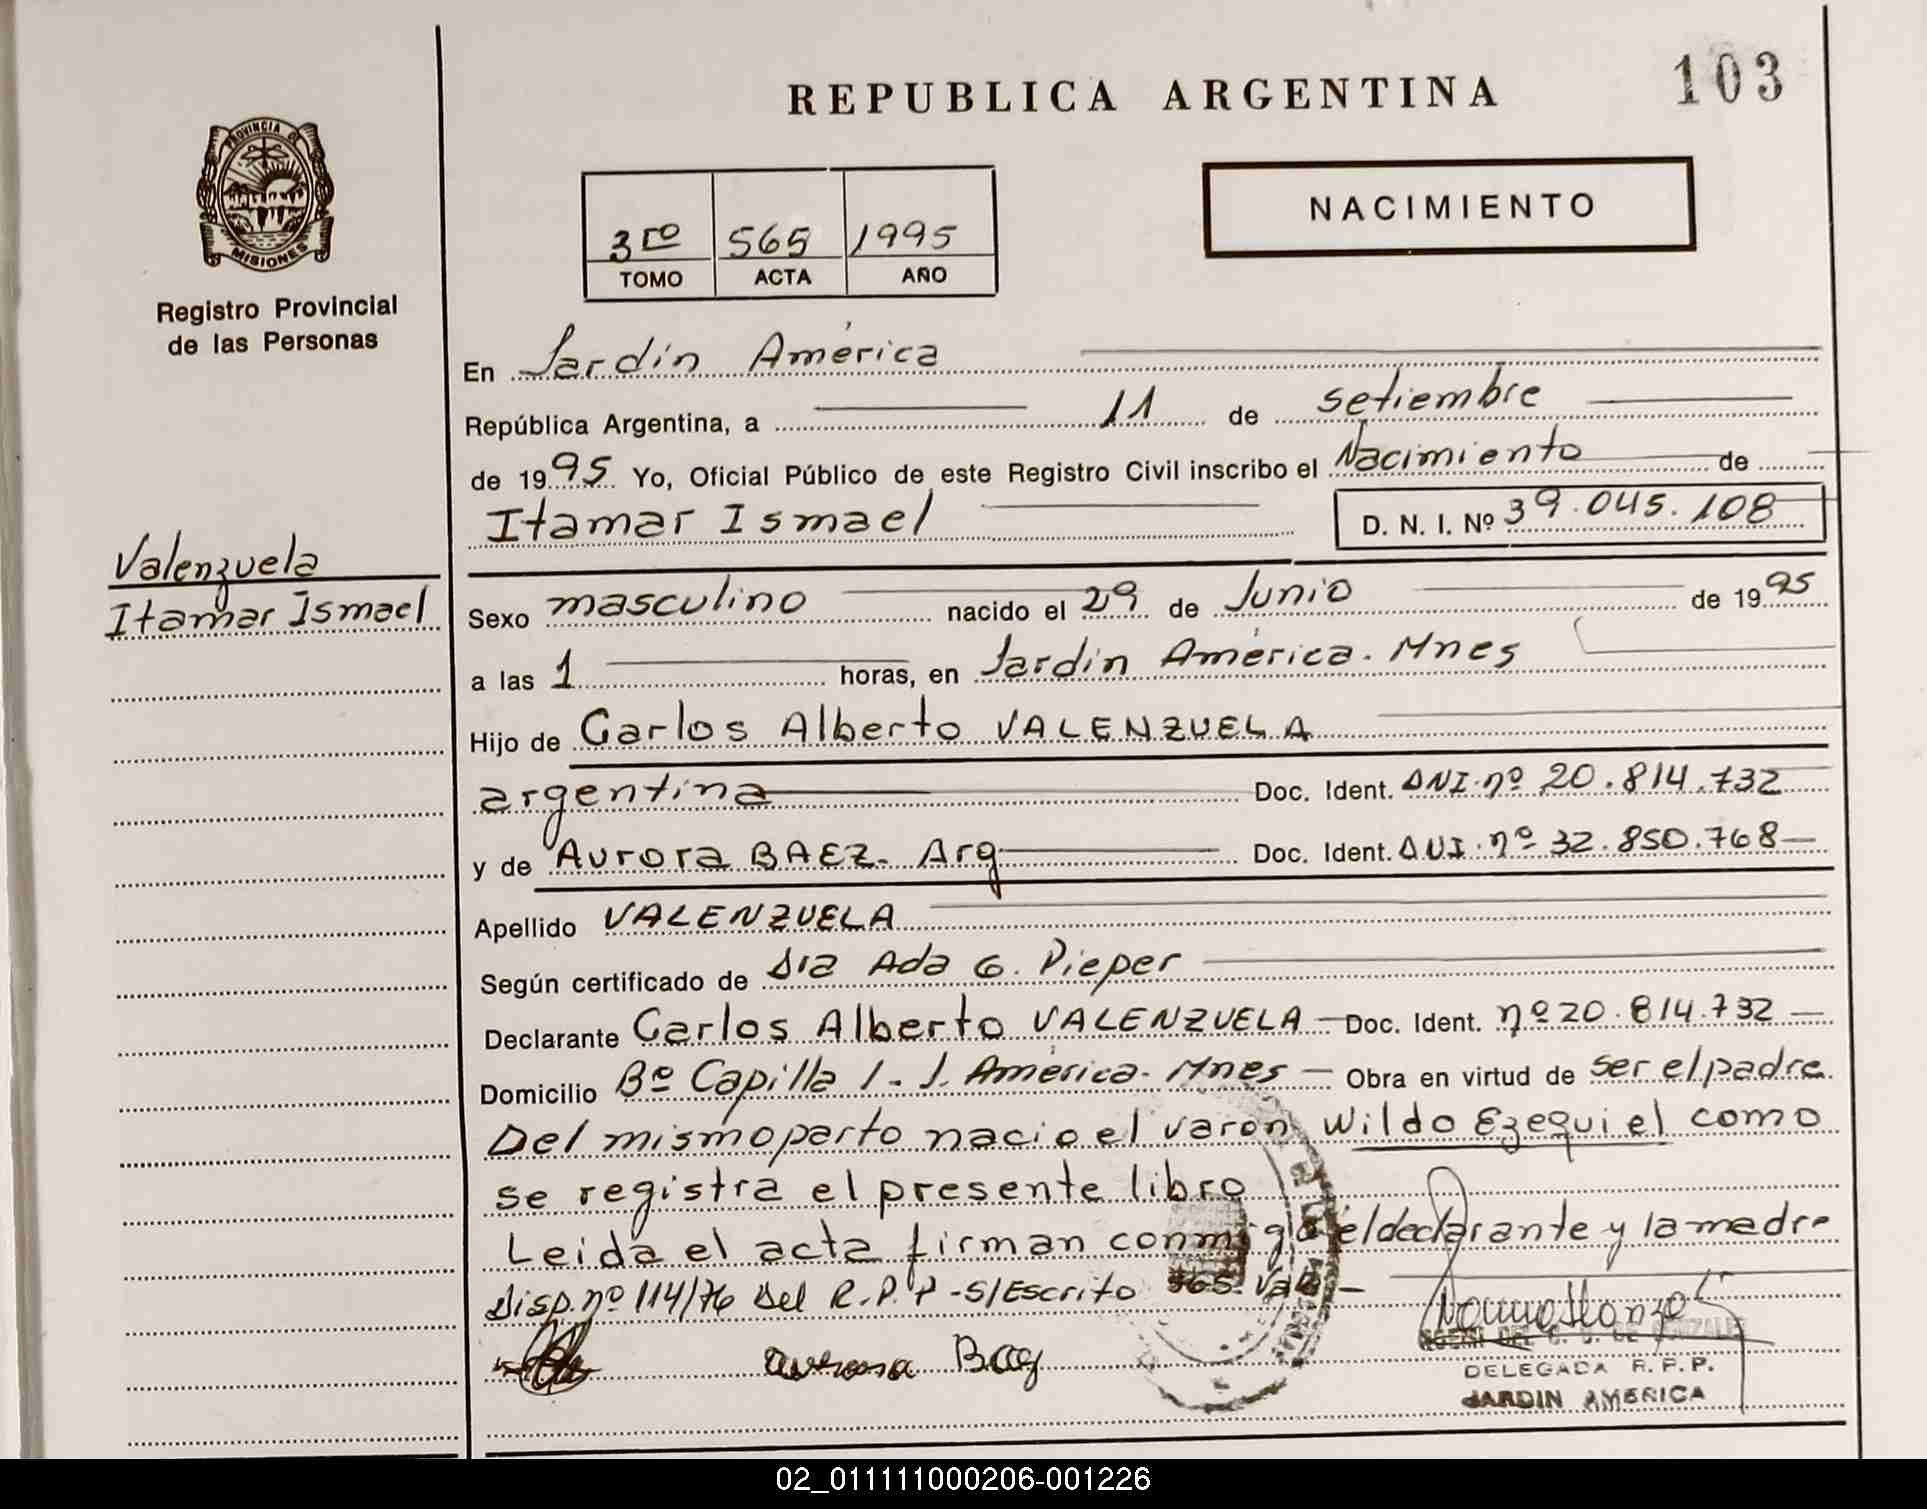 103
REPUBLICA ARGENTINA
PROVINCIA DE
MISIONES
Registro Provincial
de las Personas
NACIMIENTO
3ro 565 1995
TOMO ACTA AÑO
En Jardín América
República Argentina, a 11 de setiembre
de 1995 Yo, Oficial Público de este Registro Civil inscribo el Nacimiento de
Itamar Ismael D. N. I. Nº 39.045.108
Valenzuela
Itamar Ismael
Sexo masculino nacido el 29 de Junio de 1995
a las 1 horas, en Jardin América. Mnes
Hijo de Carlos Alberto VALENZUELA
argentina Doc. Ident. DNI. nº 20.814.732
y de Aurora BAEZ. Arg Doc. Ident. DNI. nº 32.850.768
Apellido VALENZUELA
Según certificado de Dra Ada G. Pieper
Declarante Carlos Alberto VALENZUELA Doc. Ident. nº 20.814.732
Domicilio Bº Capilla 1 - J. América - Mnes Obra en virtud de ser el padre
Del mismo parto nacio el varon Wildo Ezequiel como
se registra el presente libro
Leida el acta firman conmigo el declarante y la madre
Disp. nº 114/76 del R.P.P - S/Escrito 565. Vale
Aurora
DELEGADA R. P. P.
JARDIN AMERICA
02_011111000206-001226